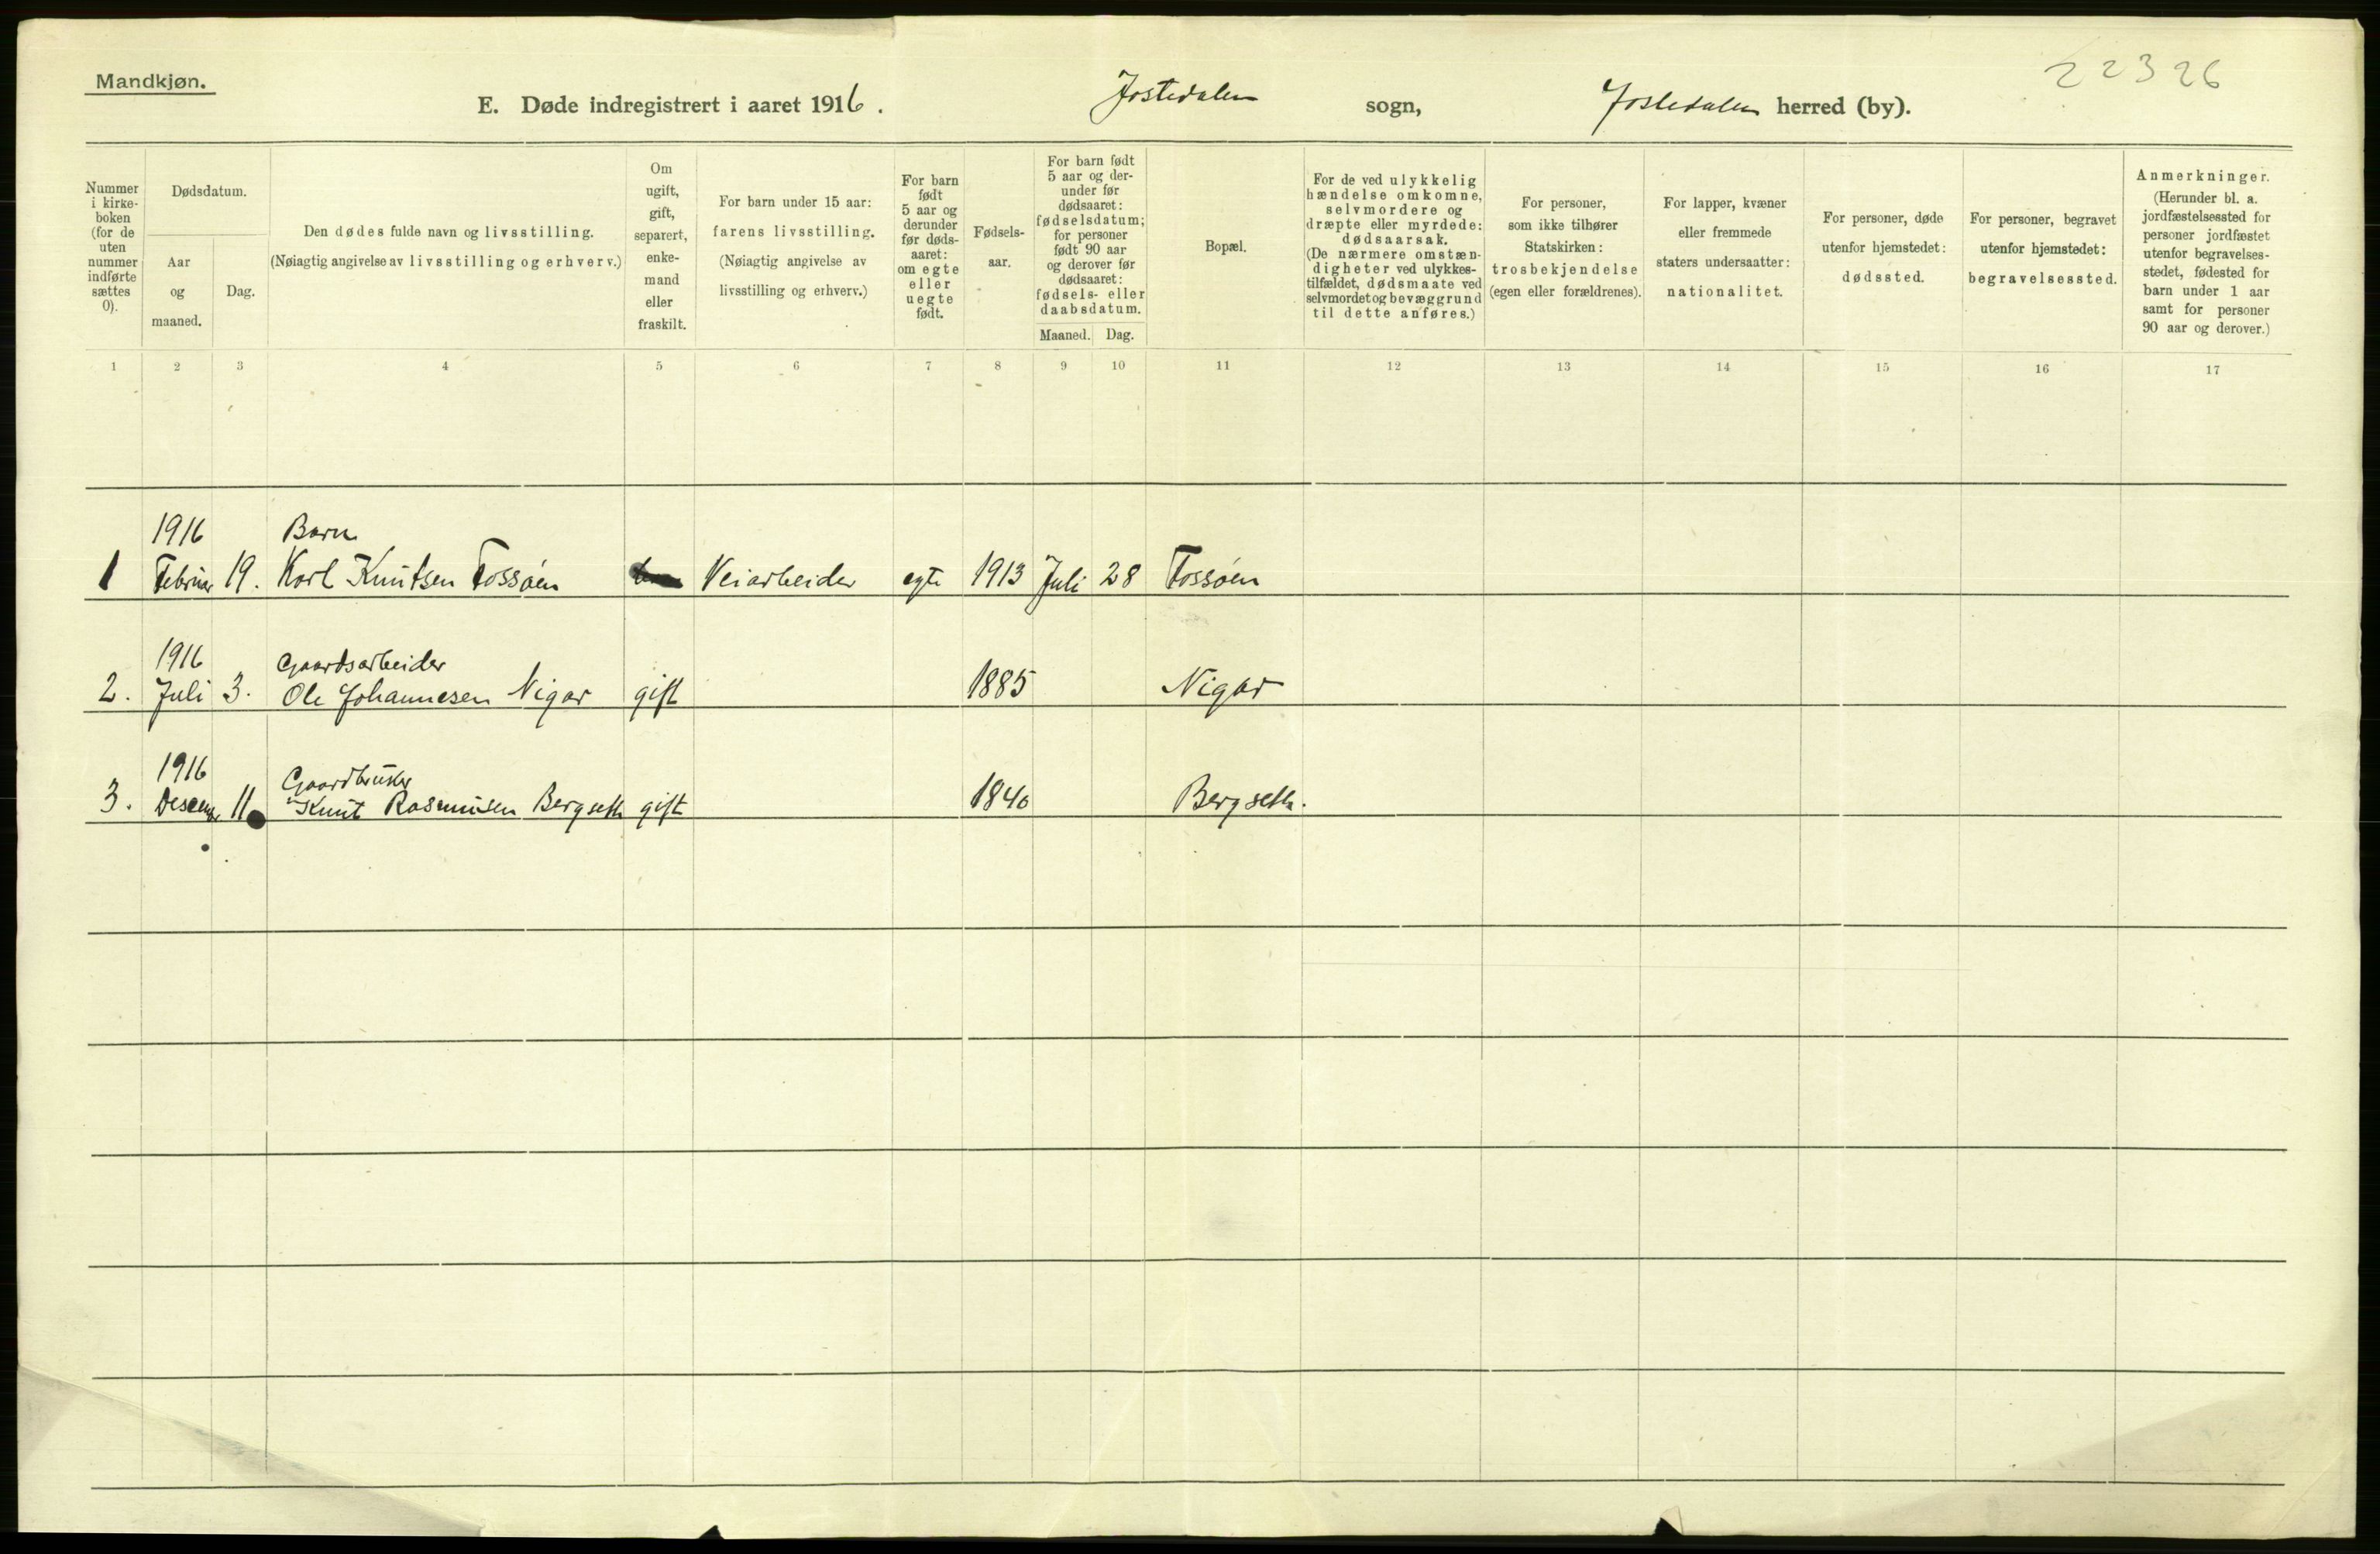 Mandkjøn.
22326
E. Døde indregistrert i aaret 1916. Jostedalen sogn, Jostedalen herred (by).
Nummer i kirke-boken (for de uten nummer indførte sættes 0).
Dødsdatum.
Aar og maaned.
Dag.
Den dødes fulde navn og livsstilling.
(Nøiagtig angivelse av livsstilling og erhverv.)
Om ugift, gift, separert, enke-mand eller fraskilt.
For barn under 15 aar:
farens livsstilling.
(Nøiagtig angivelse av livsstilling og erhverv.)
For barn født 5 aar og derunder før døds-aaret: om egte eller uegte født.
Fødsels-aar.
For barn født 5 aar og der-under før dødsaaret: fødselsdatum; for personer født 90 aar og derover før dødsaaret: fødsels- eller daabsdatum.
Maaned. Dag.
Bopæl.
For de ved ulykkelig hændelse omkomne, selvmordere og dræpte eller myrdede: dødsaarsak. (De nærmere omstæn-digheter ved ulykkes-tilfældet, dødsmaate ved selvmordet og bevæggrund til dette anføres.)
For personer, som ikke tilhører Statskirken: trosbekjendelse (egen eller forældrenes).
For lapper, kvæner eller fremmede staters undersaatter: nationalitet.
For personer, døde utenfor hjemstedet: dødssted.
For personer, begravet utenfor hjemstedet: begravelsessted.
Anmerkninger.
(Herunder bl. a. jordfæstelsessted for personer jordfæstet utenfor begravelses-stedet, fødested for barn under 1 aar samt for personer 90 aar og derover.)
1 2 3 4 5 6 7 8 9 10 11 12 13 14 15 16 17
1916 Barn
1 Februar 19. Karl Knutsen Fossøen Veiarbeider egte 1913 Juli 28 Fossøen
1916 Gaardsarbeider
2. Juli 3. Ole Johannesen Nigar gift 1885 Nigar
1916 Gaardbruker
3. Desember 11 Knut Rasmusen Bergseth gift 1840 Bergseth.